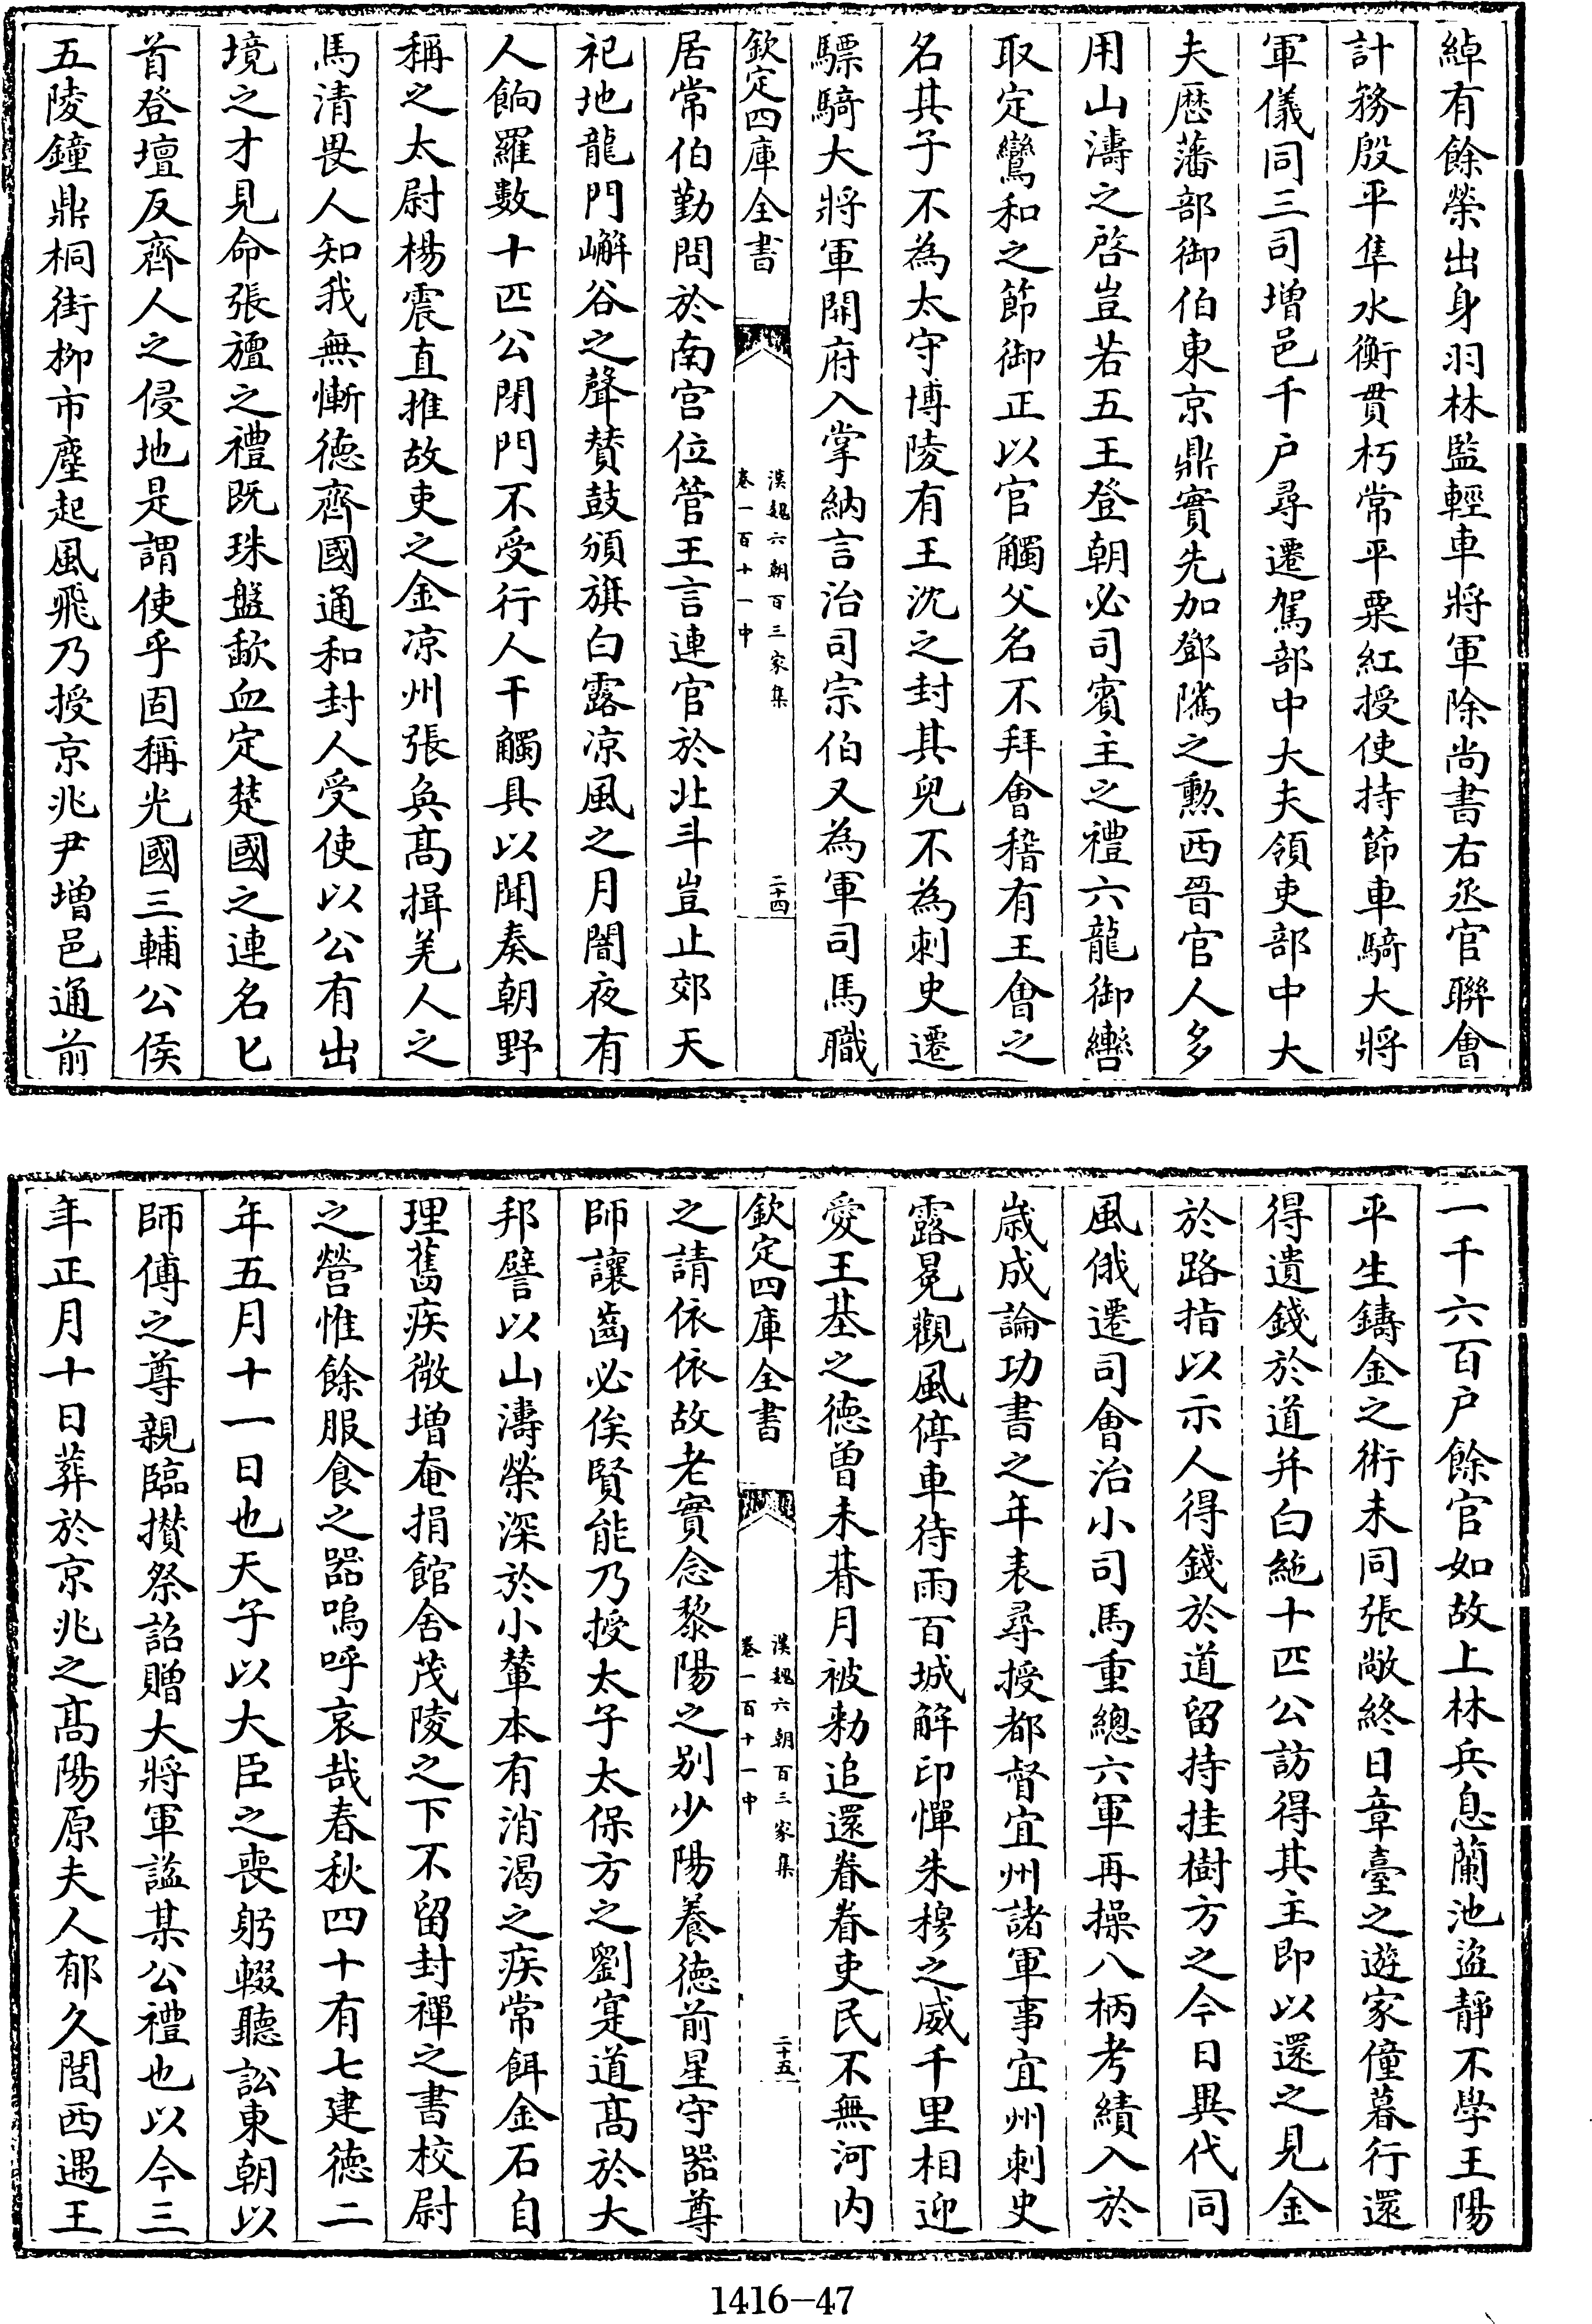 綽有餘榮出身羽林監輕車將軍除尚書右丞官聯會
計務殷平隼水衡貫朽常平粟紅授使持節車騎大將
軍儀同三司增邑千户尋遷駕部中大夫領吏部中大
夫歴藩部御伯東京鼎實先加鄧隲之勲西晉官人多
用山濤之啓豈若五王登朝必司賓主之禮六龍御轡
取定鸞和之節御正以官觸父名不拜會稽有王會之
名其子不為太守博陵有王沈之封其兒不為刺史遷
驃騎大將軍開府入掌納言治司宗伯又為軍司馬職
欽定四庫全書
漢魏六朝百三家集
卷一百十一中
二十四
居常伯勤問於南宫位管王言連官於北斗豈止郊天
祀地龍門嶰谷之聲賛鼓頒旗白露凉風之月闇夜有
人餉羅數十匹公閉門不受行人干觸具以聞奏朝野
稱之太尉楊震直推故吏之金凉州張奐髙揖羌人之
馬清畏人知我無慚德齊國通和封人受使以公有出
境之才見命張旜之禮既珠盤歃血定楚國之連名匕
首登壇反齊人之侵地是謂使乎固稱光國三輔公侯
五陵鐘鼎桐街柳市塵起風飛乃授京兆尹增邑通前
一千六百户餘官如故上林兵息蘭池盜靜不學王陽
平生鑄金之術未同張敞終日章臺之遊家僮暮行還
得遺錢於道并白絁十匹公訪得其主即以還之見金
於路指以示人得錢於道留持挂樹方之今日異代同
風俄遷司會治小司馬重總六軍再操八柄考績入於
歳成論功書之年表尋授都督宜州諸軍事宜州刺史
露冕觀風停車待雨百城解印憚朱穆之威千里相迎
愛王基之德曽未朞月被勑追還眷眷吏民不無河内
欽定四庫全書
漢魏六朝百三家集
卷一百十一中
二十五
之請依依故老實念黎陽之别少陽養德前星守器尊
師讓齒必俟賢能乃授太子太保方之劉寔道髙於大
邦譬以山濤榮深於小輦本有消渴之疾常餌金石自
理舊疾微增奄捐館舍茂陵之下不留封禪之書校尉
之營惟餘服食之器嗚呼哀哉春秋四十有七建德二
年五月十一日也天子以大臣之喪躬輟聽訟東朝以
師傅之尊親臨攅祭詔贈大將軍諡某公禮也以今三
年正月十日葬於京兆之髙陽原夫人郁久閭西遇王
1416-47